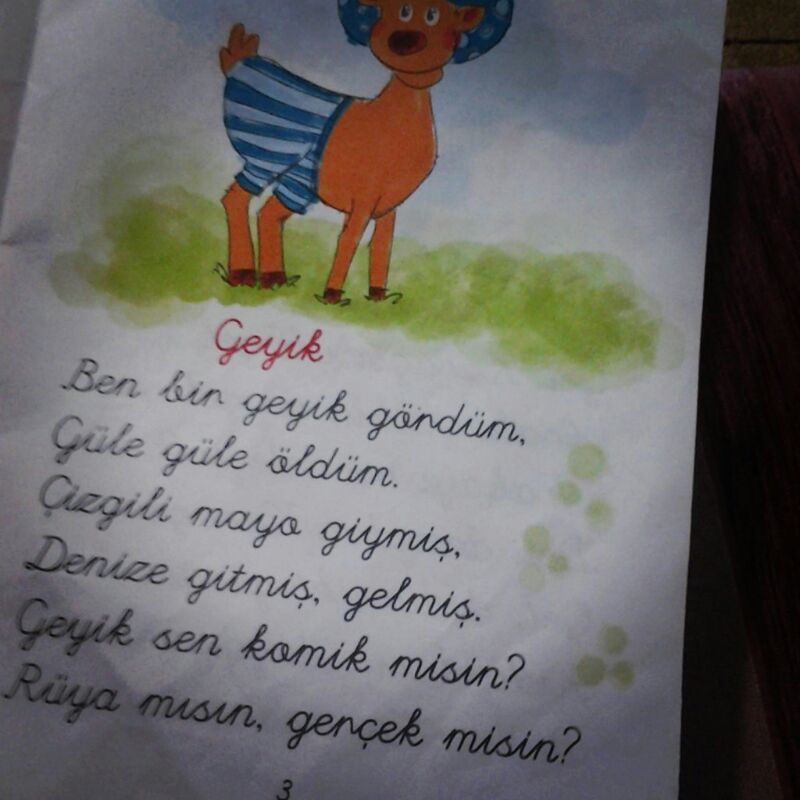 Geyik
Ben bir geyik gördüm,
Güle güle öldüm.
Çizgili mayo giymiş,
Denize gitmiş, gelmiş.
Geyik sen komik misin?
Rüya mısın, gerçek misin?
3